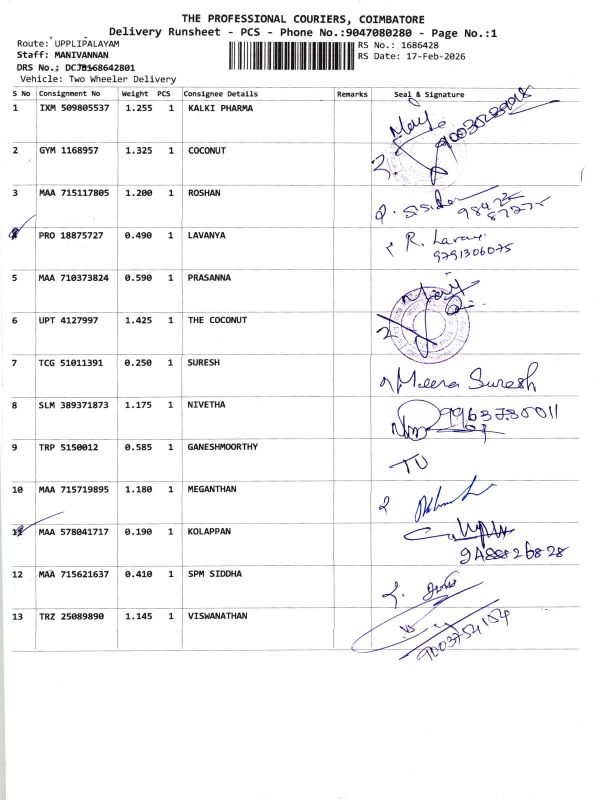 THE PROFESSIONAL COURIERS, COIMBATORE
Delivery Runsheet - PCS - Phone No.:9047080280 - Page No.:1
Route: UPPLIPALAYAM
Staff: MANIVANNAN
DRS No.: DCJB168642801
Vehicle: Two Wheeler Delivery
RS No.: 1686428
RS Date: 17-Feb-2026
S No Consignment No Weight PCS Consignee Details Remarks Seal & Signature
1 IXM 509805537 1.255 1 KALKI PHARMA
2 GYM 1168957 1.325 1 COCONUT
3 MAA 715117805 1.200 1 ROSHAN
PRO 18875727 0.490 1 LAVANYA R. 9791306075
5 MAA 710373824 0.590 1 PRASANNA
6 UPT 4127997 1.425 1 THE COCONUT
7 TCG 51011391 0.250 1 SURESH Meera Suresh
8 SLM 389371873 1.175 1 NIVETHA
9 TRP 5150012 0.585 1 GANESHMOORTHY
10 MAA 715719895 1.180 1 MEGANTHAN
11 MAA 578041717 0.190 1 KOLAPPAN
12 MAA 715621637 0.410 1 SPM SIDDHA
13 TRZ 25089890 1.145 1 VISWANATHAN 9003754154